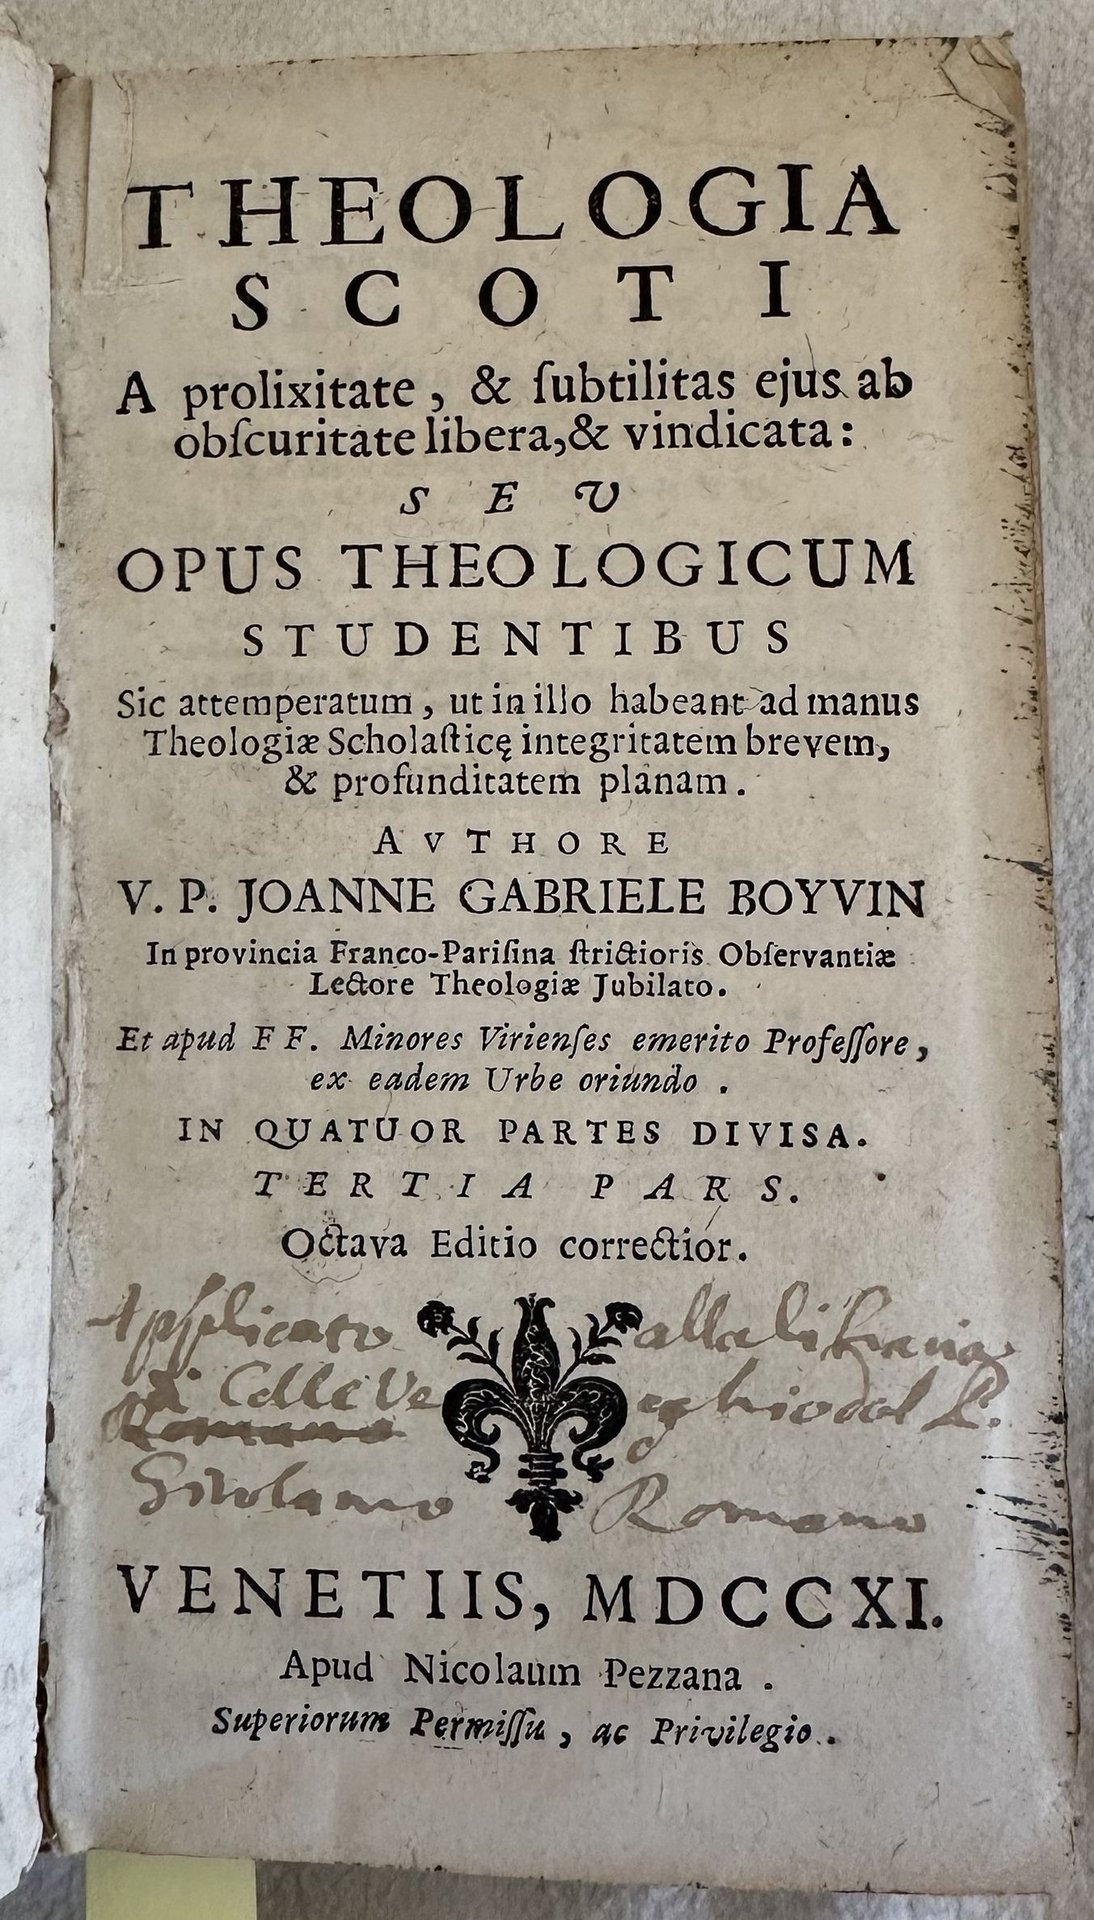 THEOLOGIA
SCOTI
A prolixitate, & ſubtilitas ejus ab
obſcuritate libera, & vindicata:
SEU
OPUS THEOLOGICUM
STUDENTIBUS
Sic attemperatum, ut in illo habeant ad manus
Theologiæ Scholaſticę integritatem brevem,
& profunditatem planam.
AVTHORE
V. P. JOANNE GABRIELE BOYVIN
In provincia Franco-Pariſina ſtrictioris Obſervantiæ
Lectore Theologiæ Jubilato.
Et apud FF. Minores Virienſes emerito Profeſſore,
ex eadem Urbe oriundo.
IN QUATUOR PARTES DIVISA.
TERTIA PARS.
Octava Editio correctior.
Applicato alla libraria
di Colle Vecchio dal P.
Girolamo Romano
VENETIIS, MDCCXI.
Apud Nicolaum Pezzana.
Superiorum Permiſſu, ac Privilegio.